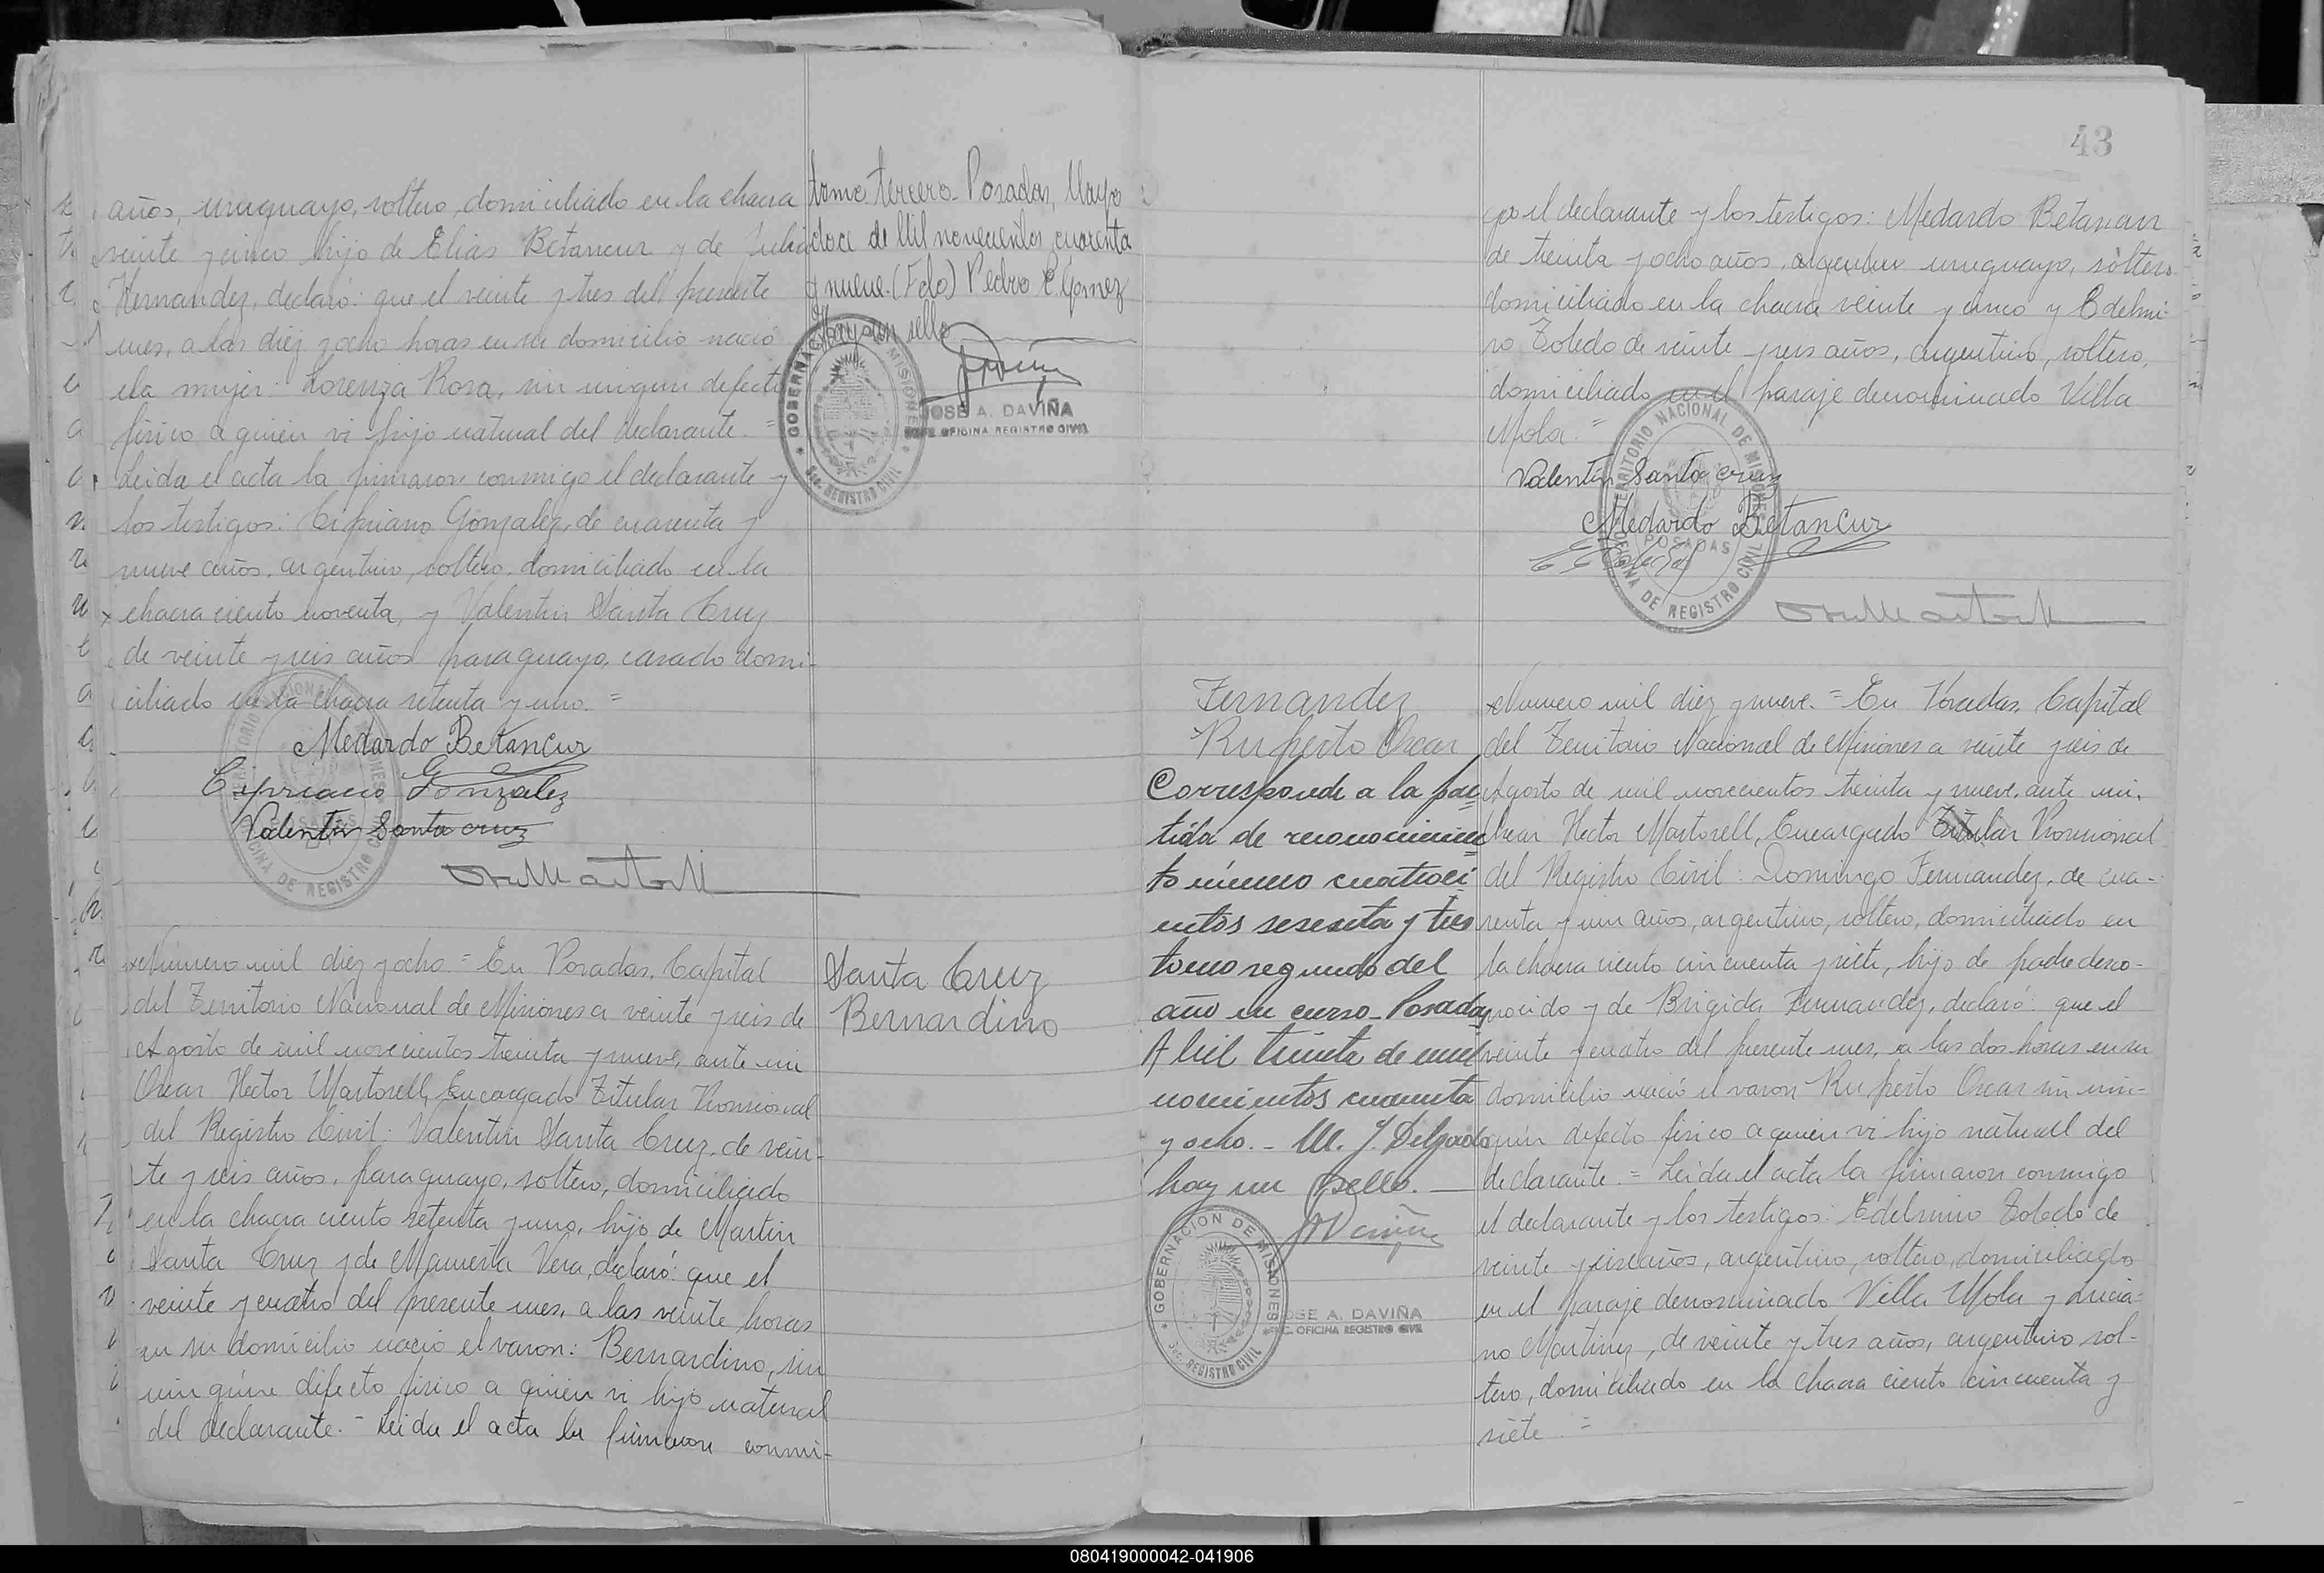 años, uruguayo, soltero, domiciliado en la chacra
veinte y cinco hijo de Elias Betancur y de Julia
Hernandez, declaró: que el veinte y tres del presente
mes, a las diez y ocho horas en su domicilio nació
ela mujer: Lorenza Rosa, sin ningun defecto
físico a quien vi hijo natural del declarante. =
Leida el acta la firmaron conmigo el declarante y
los testigos: Cipriano Gonzalez, de cuarenta y
nueve años, argentino, soltero, domiciliado en la
chacra ciento noventa, y Valentin Santa Cruz
de veinte y seis años paraguayo, casado domi-
ciliado en la chacra setenta y uno. =
Medardo Betancur
Cipriano Gonzalez
Valentin Santa cruz
tomo tercero. Posadas, Mayo
doce de Mil novecientos cuarenta
y nueve. (Fdo) Pedro C. Gomez
Hay un sello
GOBERNACION DE MISIONES
Sec. REGISTRO CIVIL
JOSE A. DAVIÑA
JEFE OFICINA REGISTRO CIVIL
Numero mil diez y ocho = En Posadas, Capital
del Territorio Nacional de Misiones a veinte y seis de
Agosto de mil novecientos treinta y nueve, ante mi
Oscar Hector Martorell, Encargado Titular Provisional
del Registro Civil: Valentin Santa Cruz, de vein-
te y seis años, paraguayo, soltero, domiciliado
en la chacra ciento setenta y uno, hijo de Martin
Santa Cruz y de Mamerta Vera, declaró: que el
veinte y cuatro del presente mes, a las veinte horas
en su domicilio nació el varon: Bernardino, sin
ningúne defecto físico a quien vi hijo natural
del declarante. - Leida el acta la firmaron conmi-
Santa Cruz
Bernardino
43
go el declarante y los testigos: Medardo Betancur
de treinta y ocho años, argentino uruguayo, soltero
domiciliado en la chacra veinte y cinco y Edelmi-
ro Toledo de veinte y seis años, argentino, soltero,
domiciliado en el paraje denominado Villa
Mola. =
Valentin Santa cruz
Medardo Betancur
TERRITORIO NACIONAL DE MISIONES
POSADAS
OFICINA DE REGISTRO CIVIL
Fernandez
Ruperto Oscar
Corresponde a la par
tida de reconocimien
to número cuatroci
entos sesenta y tres
tomo segundo del
año en curso. Posadas
Abril treinta de mil
novecientos cuarenta
y ocho. - M. J. Delgado
hay un sello.
GOBERNACION DE MISIONES
Sec. REGISTRO CIVIL
JOSE A. DAVIÑA
OFICINA REGISTRO CIVIL
Numero mil diez y nueve. = En Posadas, Capital
del Territorio Nacional de Misiones a veinte y seis de
Agosto de mil novecientos treinta y nueve, ante mi,
Oscar Hector Martorell, Encargado Titular Provisional
del Registro Civil: Domingo Fernandez, de cua-
renta y un años, argentino, soltero, domiciliado en
la chacra ciento cincuenta y siete, hijo de padre desco-
nocido y de Brigida Fernandez, declaró: que el
veinte y cuatro del presente mes, a las dos horas en su
domicilio nació el varon Ruperto Oscar sin nin-
gún defecto físico a quien vi hijo natural del
declarante. = Leida el acta la firmaron conmigo
el declarante y los testigos: Edelmiro Toledo de
veinte y seis años, argentino, soltero, domiciliado
en el paraje denominado Villa Mola y Lucia-
no Martinez, de veinte y tres años, argentino sol-
tero, domiciliado en la chacra ciento cincuenta y
siete. =
080419000042-041906